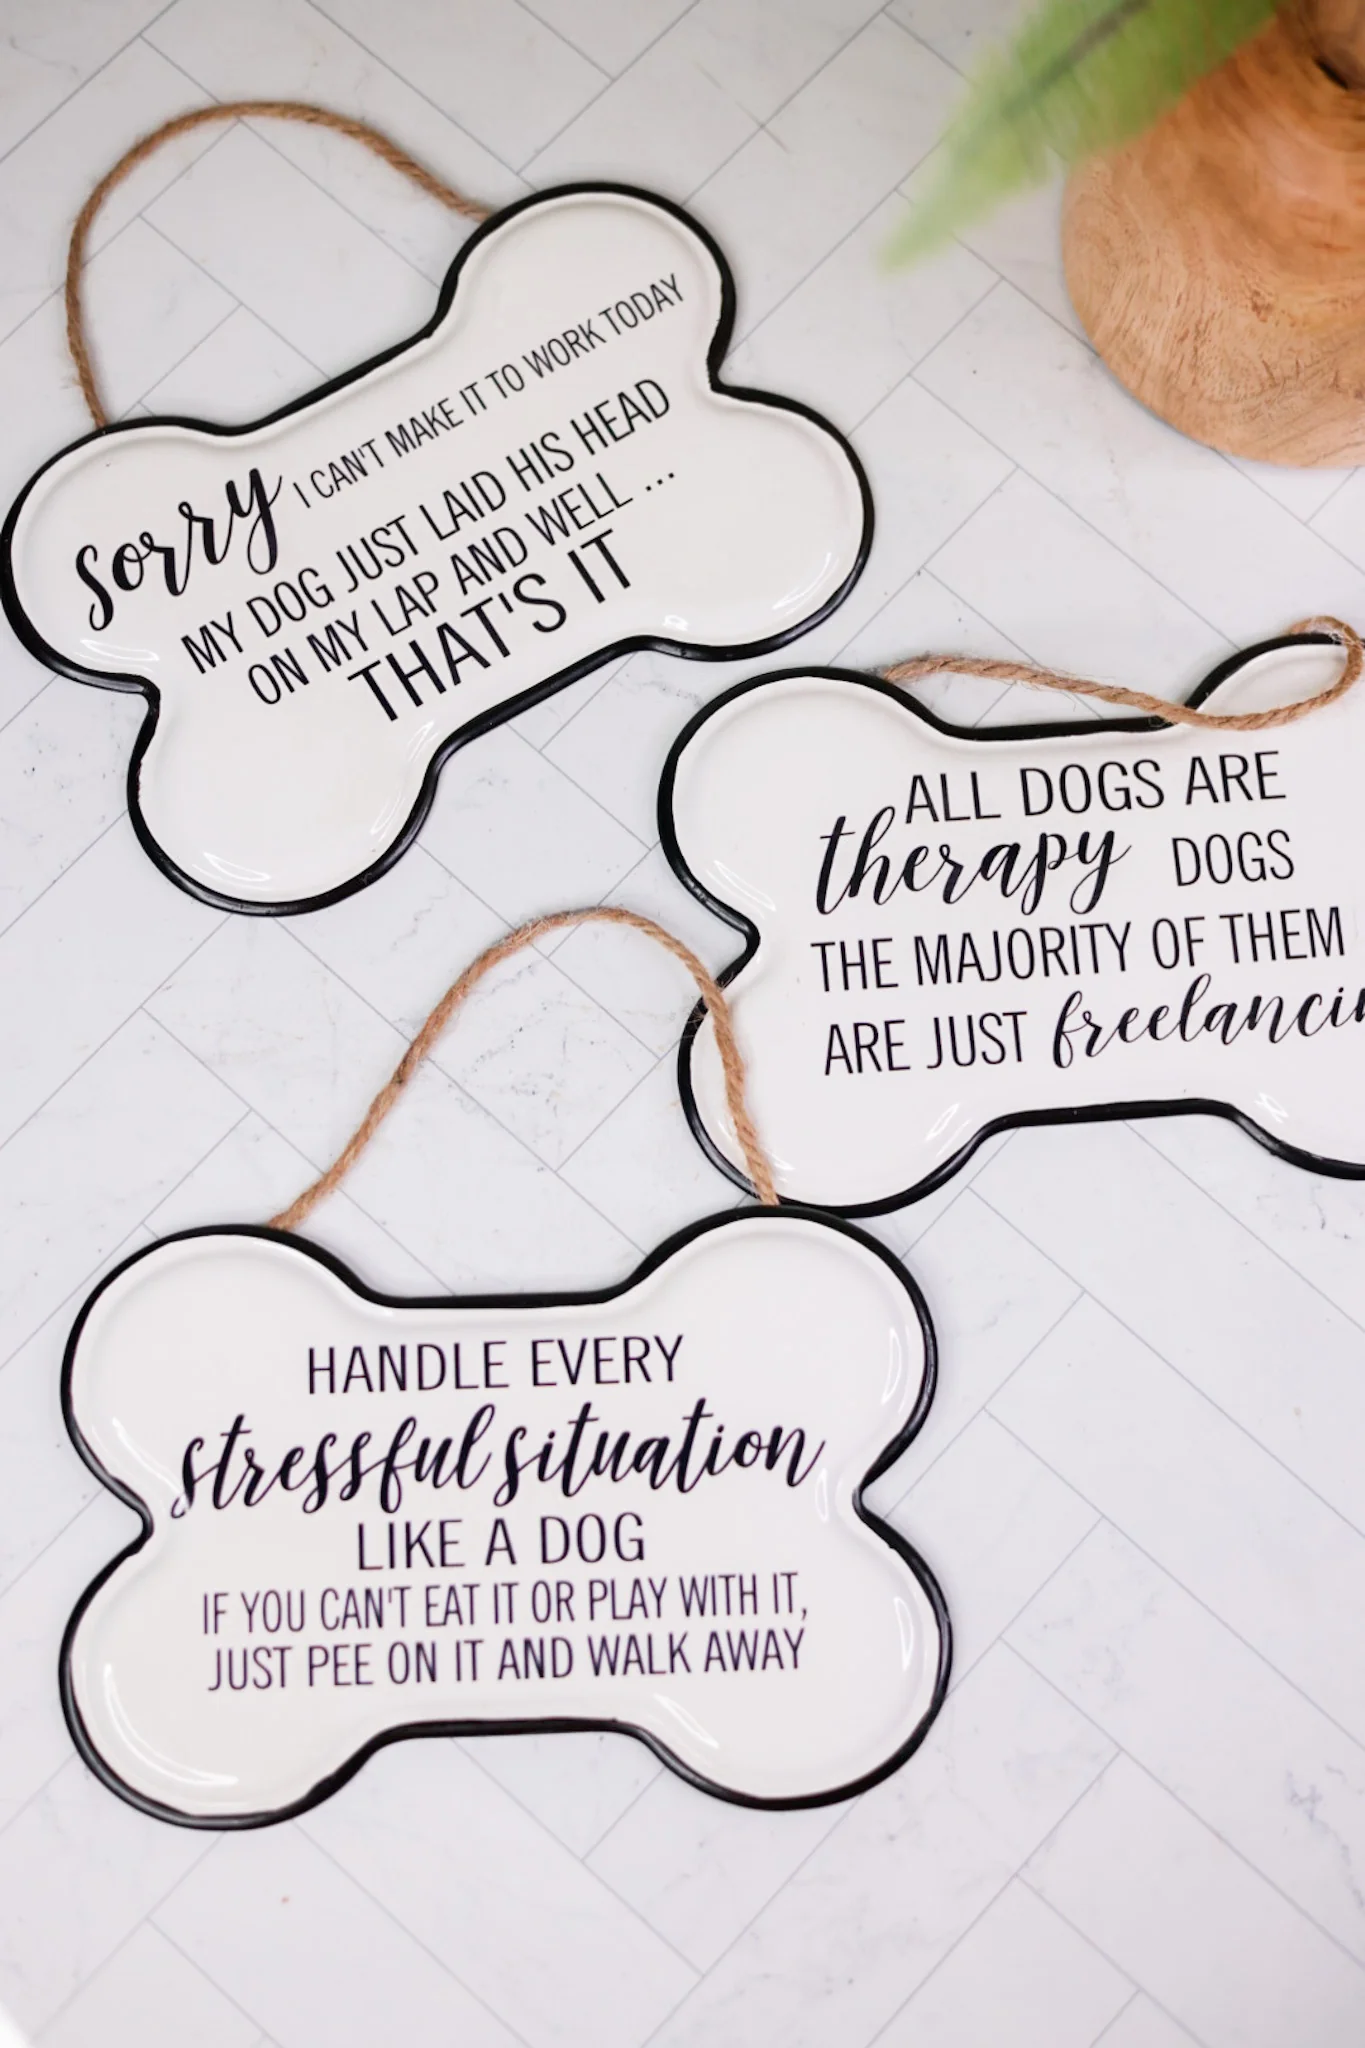 sorry I CAN'T MAKE IT TO WORK TODAY
MY DOG JUST LAID HIS HEAD
ON MY LAP AND WELL ...
THAT'S IT
ALL DOGS ARE
therapy DOGS
THE MAJORITY OF THEM
ARE JUST
HANDLE EVERY
stressful situation
LIKE A DOG
IF YOU CAN'T EAT IT OR PLAY WITH IT,
JUST PEE ON IT AND WALK AWAY